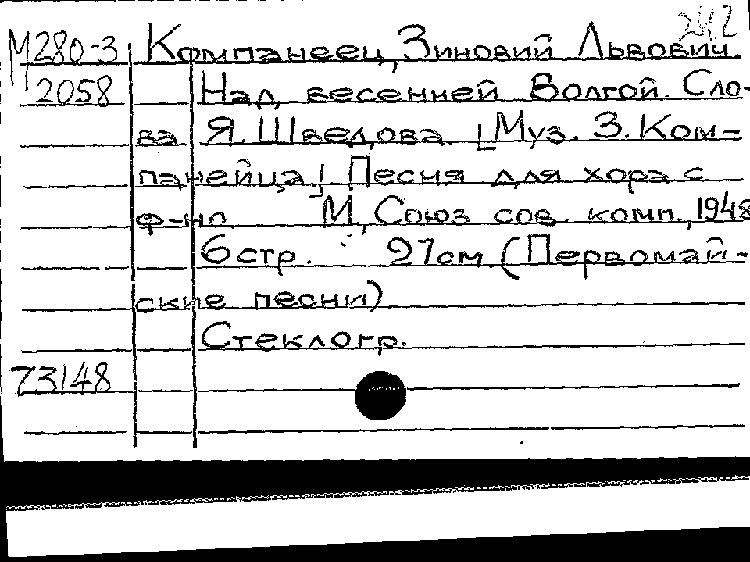 24.2
М280-3 Компанеец, Зиновий Львович
2058 Над весенней Волгой. Сло-
ва Я. Шведова. [Муз. З. Ком-
панейца] Песня для хора с
ф-но М., Союз сов. комп., 1948
6 стр. 27 см (Первомай-
ские песни)
Стеклогр.
73148